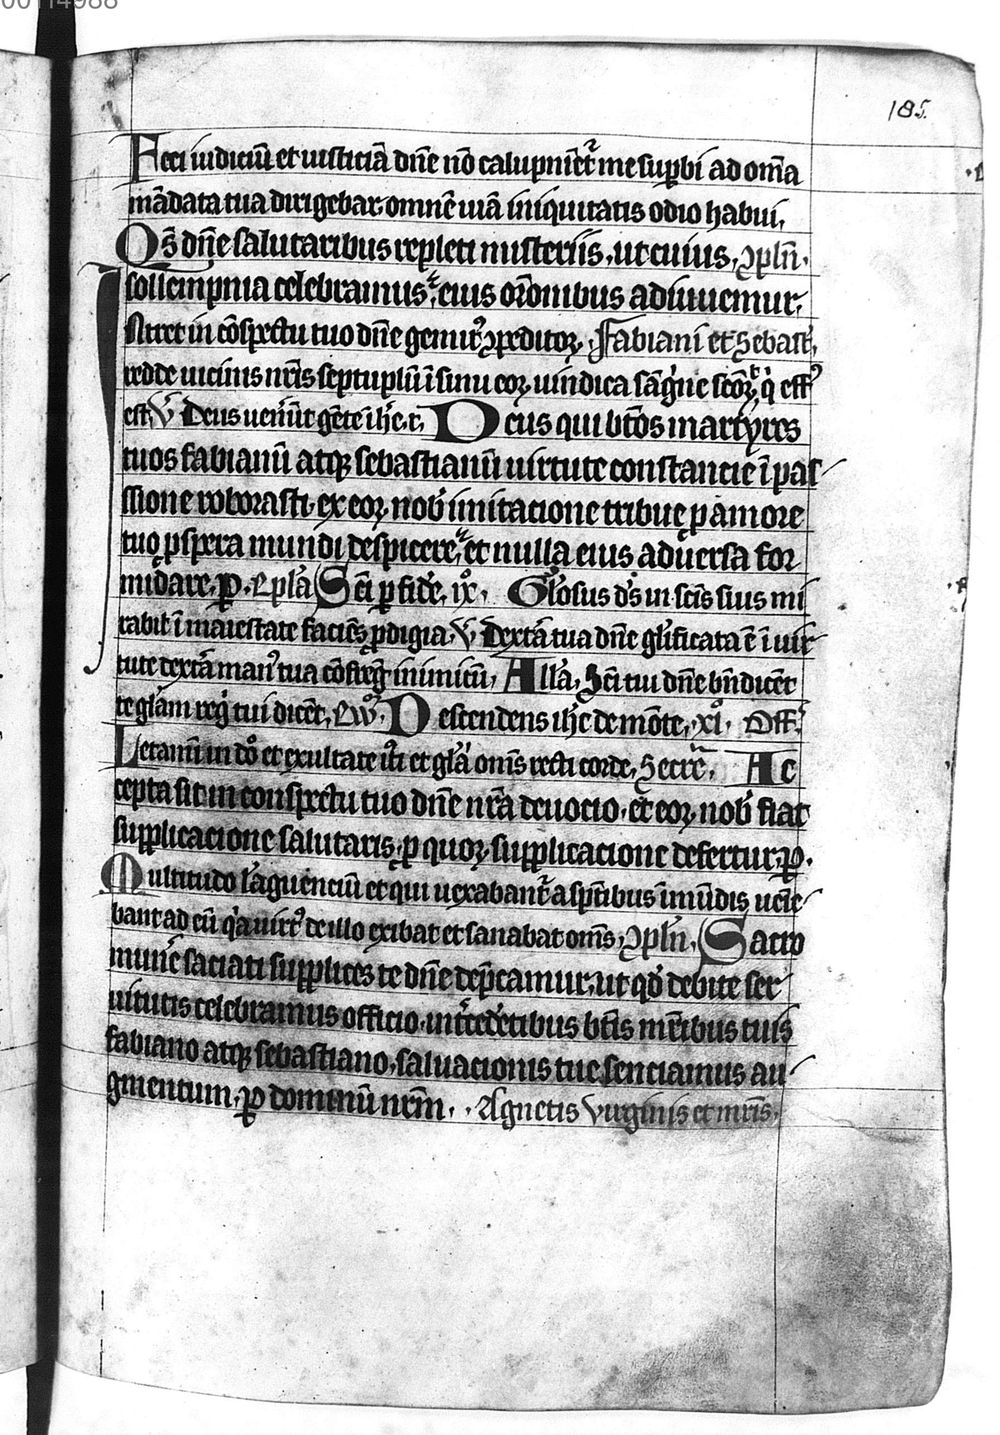 00114988
185.
Feci iudiciū et iusticiā dn̄e nō calūpniēt᷑ me suꝑbi ad om̄a
mādata tua dirigebar omnē uiā iniquitatis odio habui,
Qs̄ dn̄e salutaribus repleti misteriis, ut cuius, ꝯpln̄.
sollempnia celebramus, eius or̄onibus adiuuemur,
Intret in cōspectu tuo dn̄e gemitꝰ ꝯpeditoꝝ, Fabiani et Sebast̄,
redde uicinis nr̄is septuplū ī sinu eoꝝ, uindica sāgᷓne scōꝝ q̇ effꝰ
est, V̄ Deus uenerūt gētē ī he.t. Deus qui bt̄os martyres
tuos fabianū atqꝫ sebastianū uirtute constancie ī pas
ssione roborasti, ex eoꝝ nob̄ imitacione tribue ꝑ amore
tuo ꝓspera mundi despicere, et nulla eius aduersa for
midare, ꝑ. Epl̄a Sc̄i ꝑ fidē, ix, Gl̄osus ds̄ in sc̄is suis mi
rabil̄ ī maiestate faciēs ꝓdigia, V̄ Dextā tua dn̄e gl̄ificata ē ī uir
tute dextā manꝰ tua cōfreḡ inimicū, All̄a, Sc̄i tui dn̄e bn̄dicēt
te gl̄am regᷓ tui dicēt, Ew̄. Descendens ihc̄ de mōte, xl, Off̄
Letamī in dō et exultate iti et gl̄āī omīs recti corde, Secrē, Ac
cepta sit in conspectu tuo dn̄e nr̄a deuocio, et eoꝝ nob̄ fiat
supplicacione salutaris, ꝑ quoꝝ supplicacione defertur, ꝑ.
Multitudo lāguenciū et qui uexabant᷑ a spt̄ibus īmūdis uenie
bant ad eū qᷓa uirtꝰ de illo exibat et sanabat om̄s, ꝯpln̄, Sacro
munē saciati supplices te dn̄e dep̄camur, ut qd̄ debite ser
uitutis celebramus officio, int᷑cedētibus bt̄is mr̄ibus tuis
fabiano atqꝫ sebastiano, saluacionis tue senciamus au
gmentum, ꝑ dominū nr̄m, . Agnetis Virginis et mr̄is.